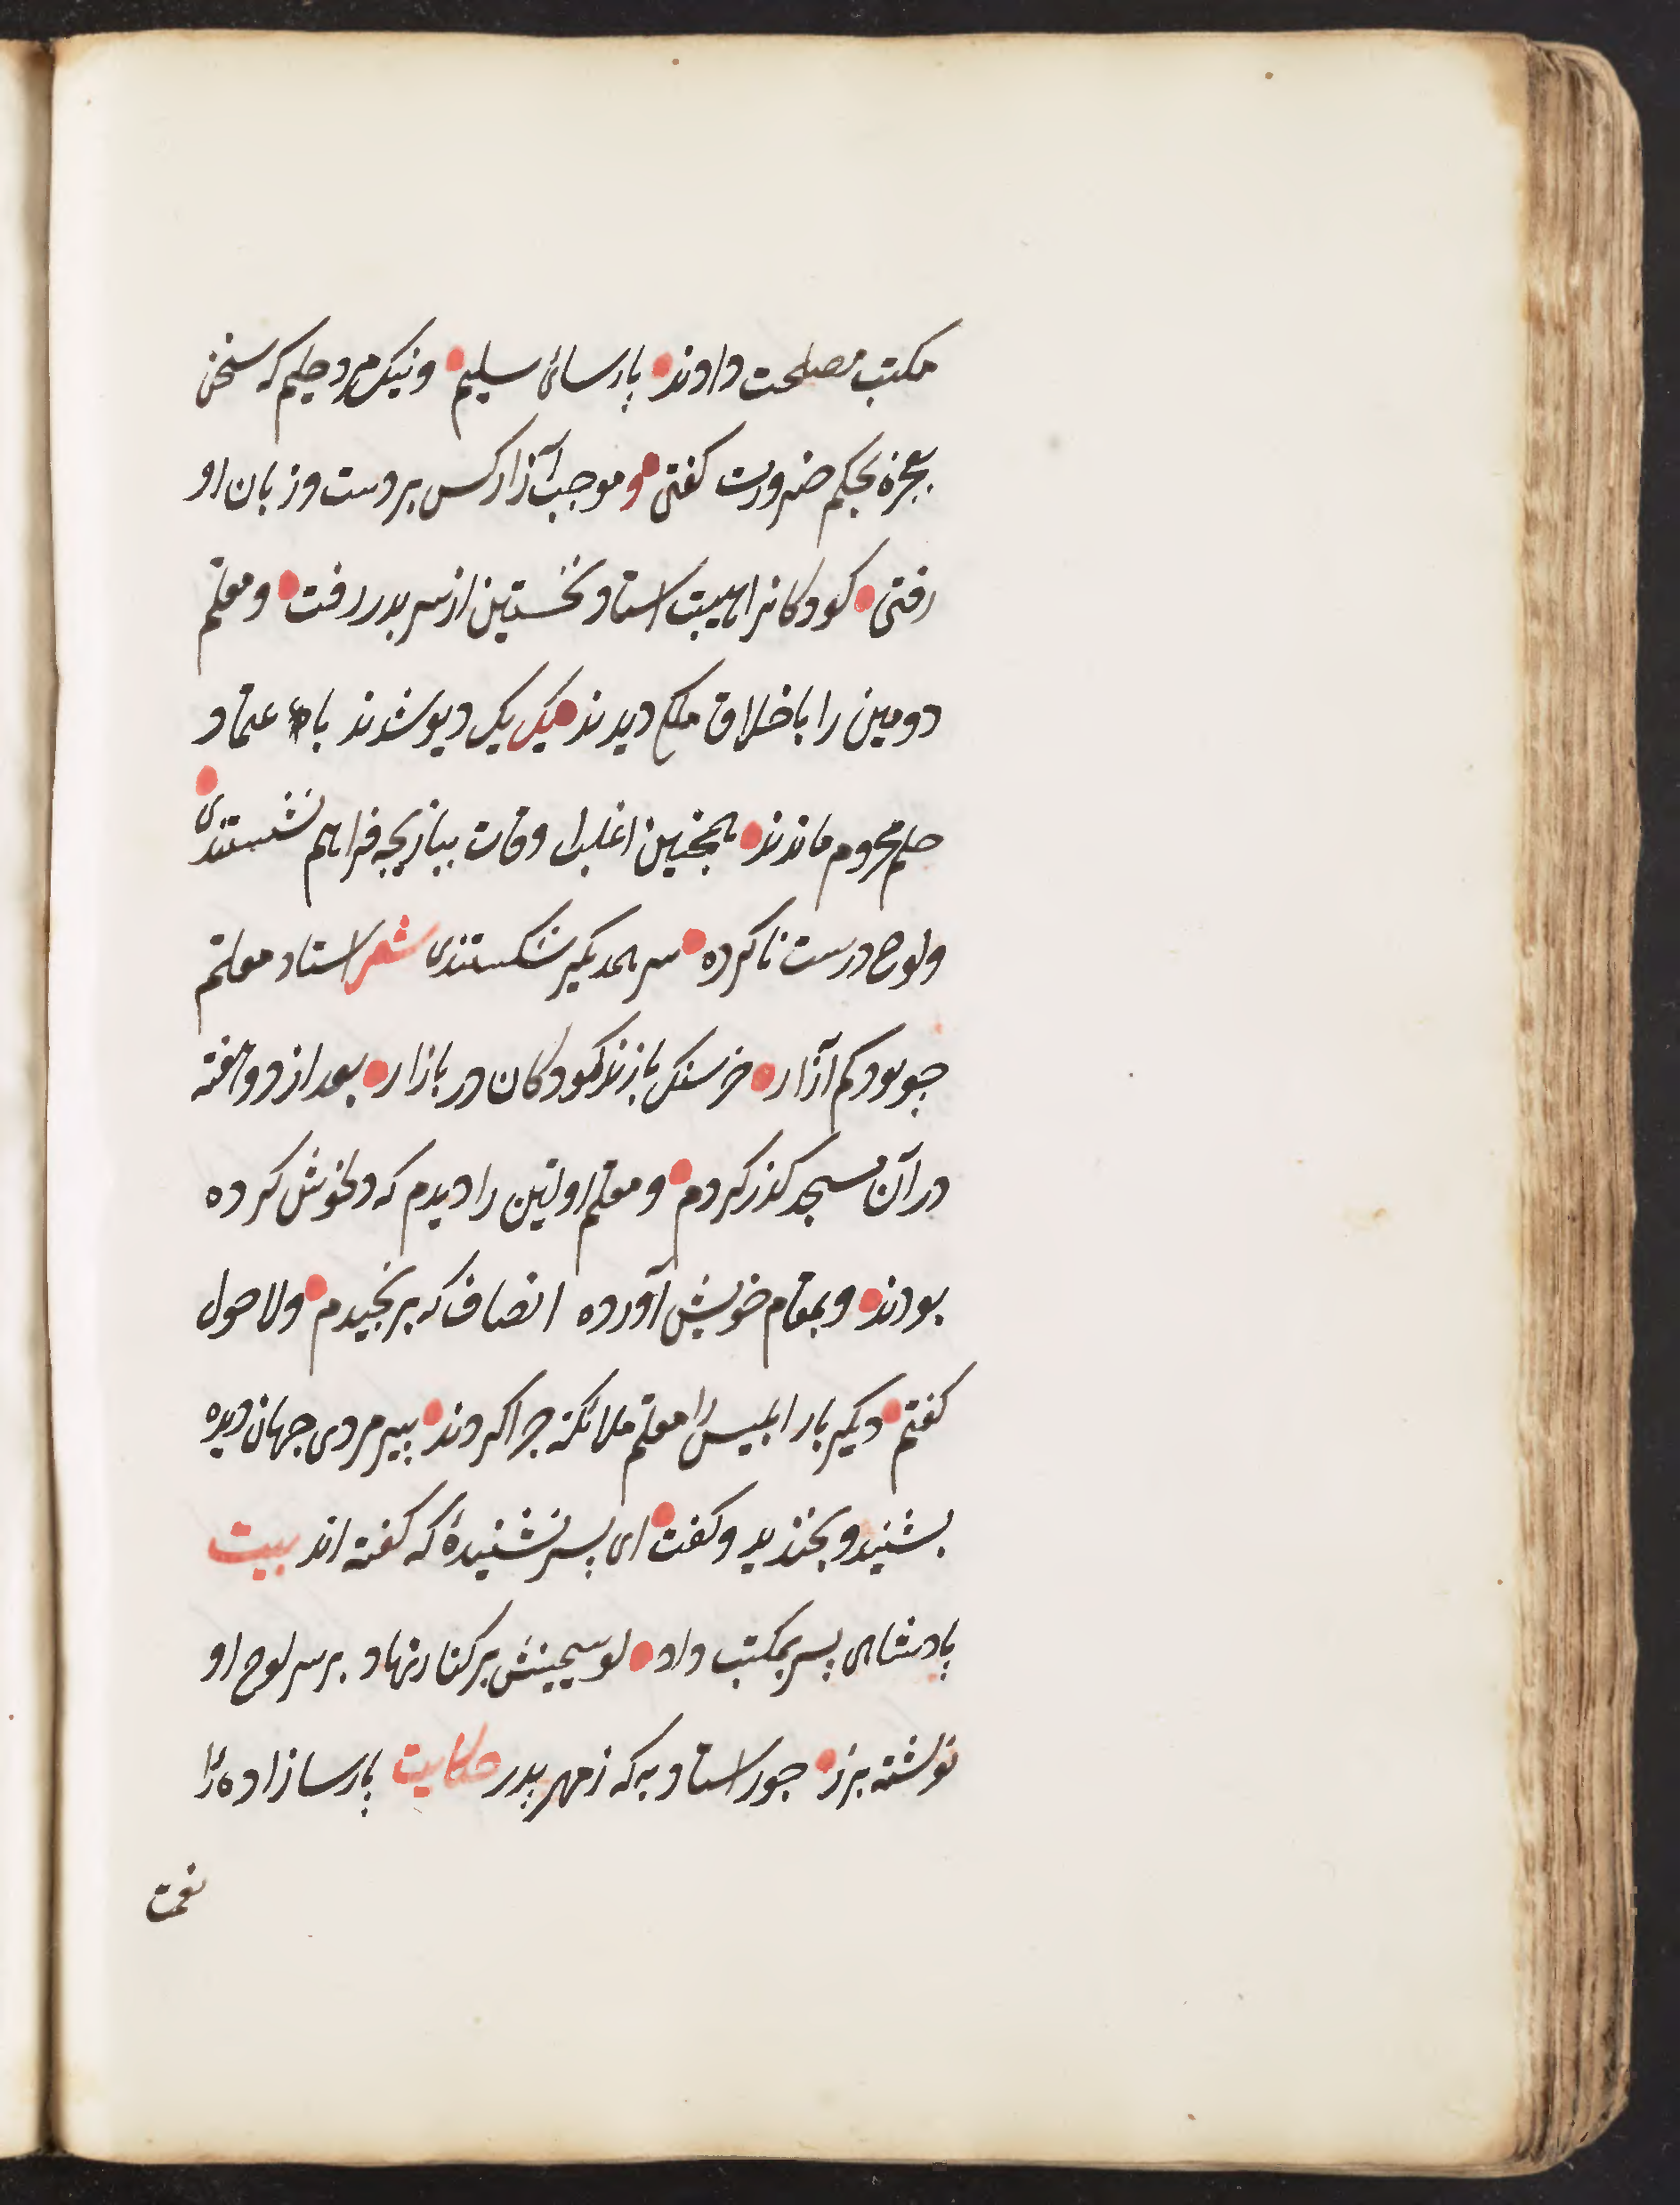 مکتب مصلحت دادند پارسائ سلیم ونیک مرد حلیم که سخن
بجزء بحکم ضرورت کفتی و موجب آزار کس بر دست و زبان او
رفتی کودکانرا هیبت استاد نخستین از سر بدر رفت ومعلّم
دومین را باخلاق ملکی دیدند یک یک دیو شدند باعتماد
حلم محروم ماندند همچنین اغلب اوقات ببازیچه فراهم نشستندی
ولوح درست ناکرده سر همدیکر شکستندی شعر استاد معلّم
چو بود کم آزار خرسنک بازند کودکان در بازار بعد از دو هفته
در آن مسجد کذر کردم ومعلّم اولین را دیدم که دلخوش کرده
بودند وبمقام خویش آورده انصاف که برنجیدم ولاحول
کفتم دیکر بار ابلیس را معلّم ملائکه چرا کردند پیرمردی جهان دیده
بشنید و بخندید وکفت ای پسر نشنیدۀ که کفته اند بیت
پادشاهی پسر بمکتب داد لوح سیمینش بر کنار نهاد بر سر لوح او
نوشته بزر جور استاد به که ز مهر پدر حکایت پارسازاده را
نعمت